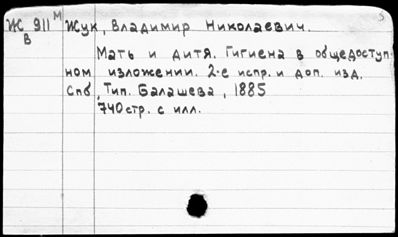 Ж 911 М Жук, Владимир Николаевич.
В
Мать и дитя. Гигиена в общедоступ-
ном изложении. 2-е испр. и доп. изд.
Спб, Тип. Балашева, 1885
740 стр. с илл.